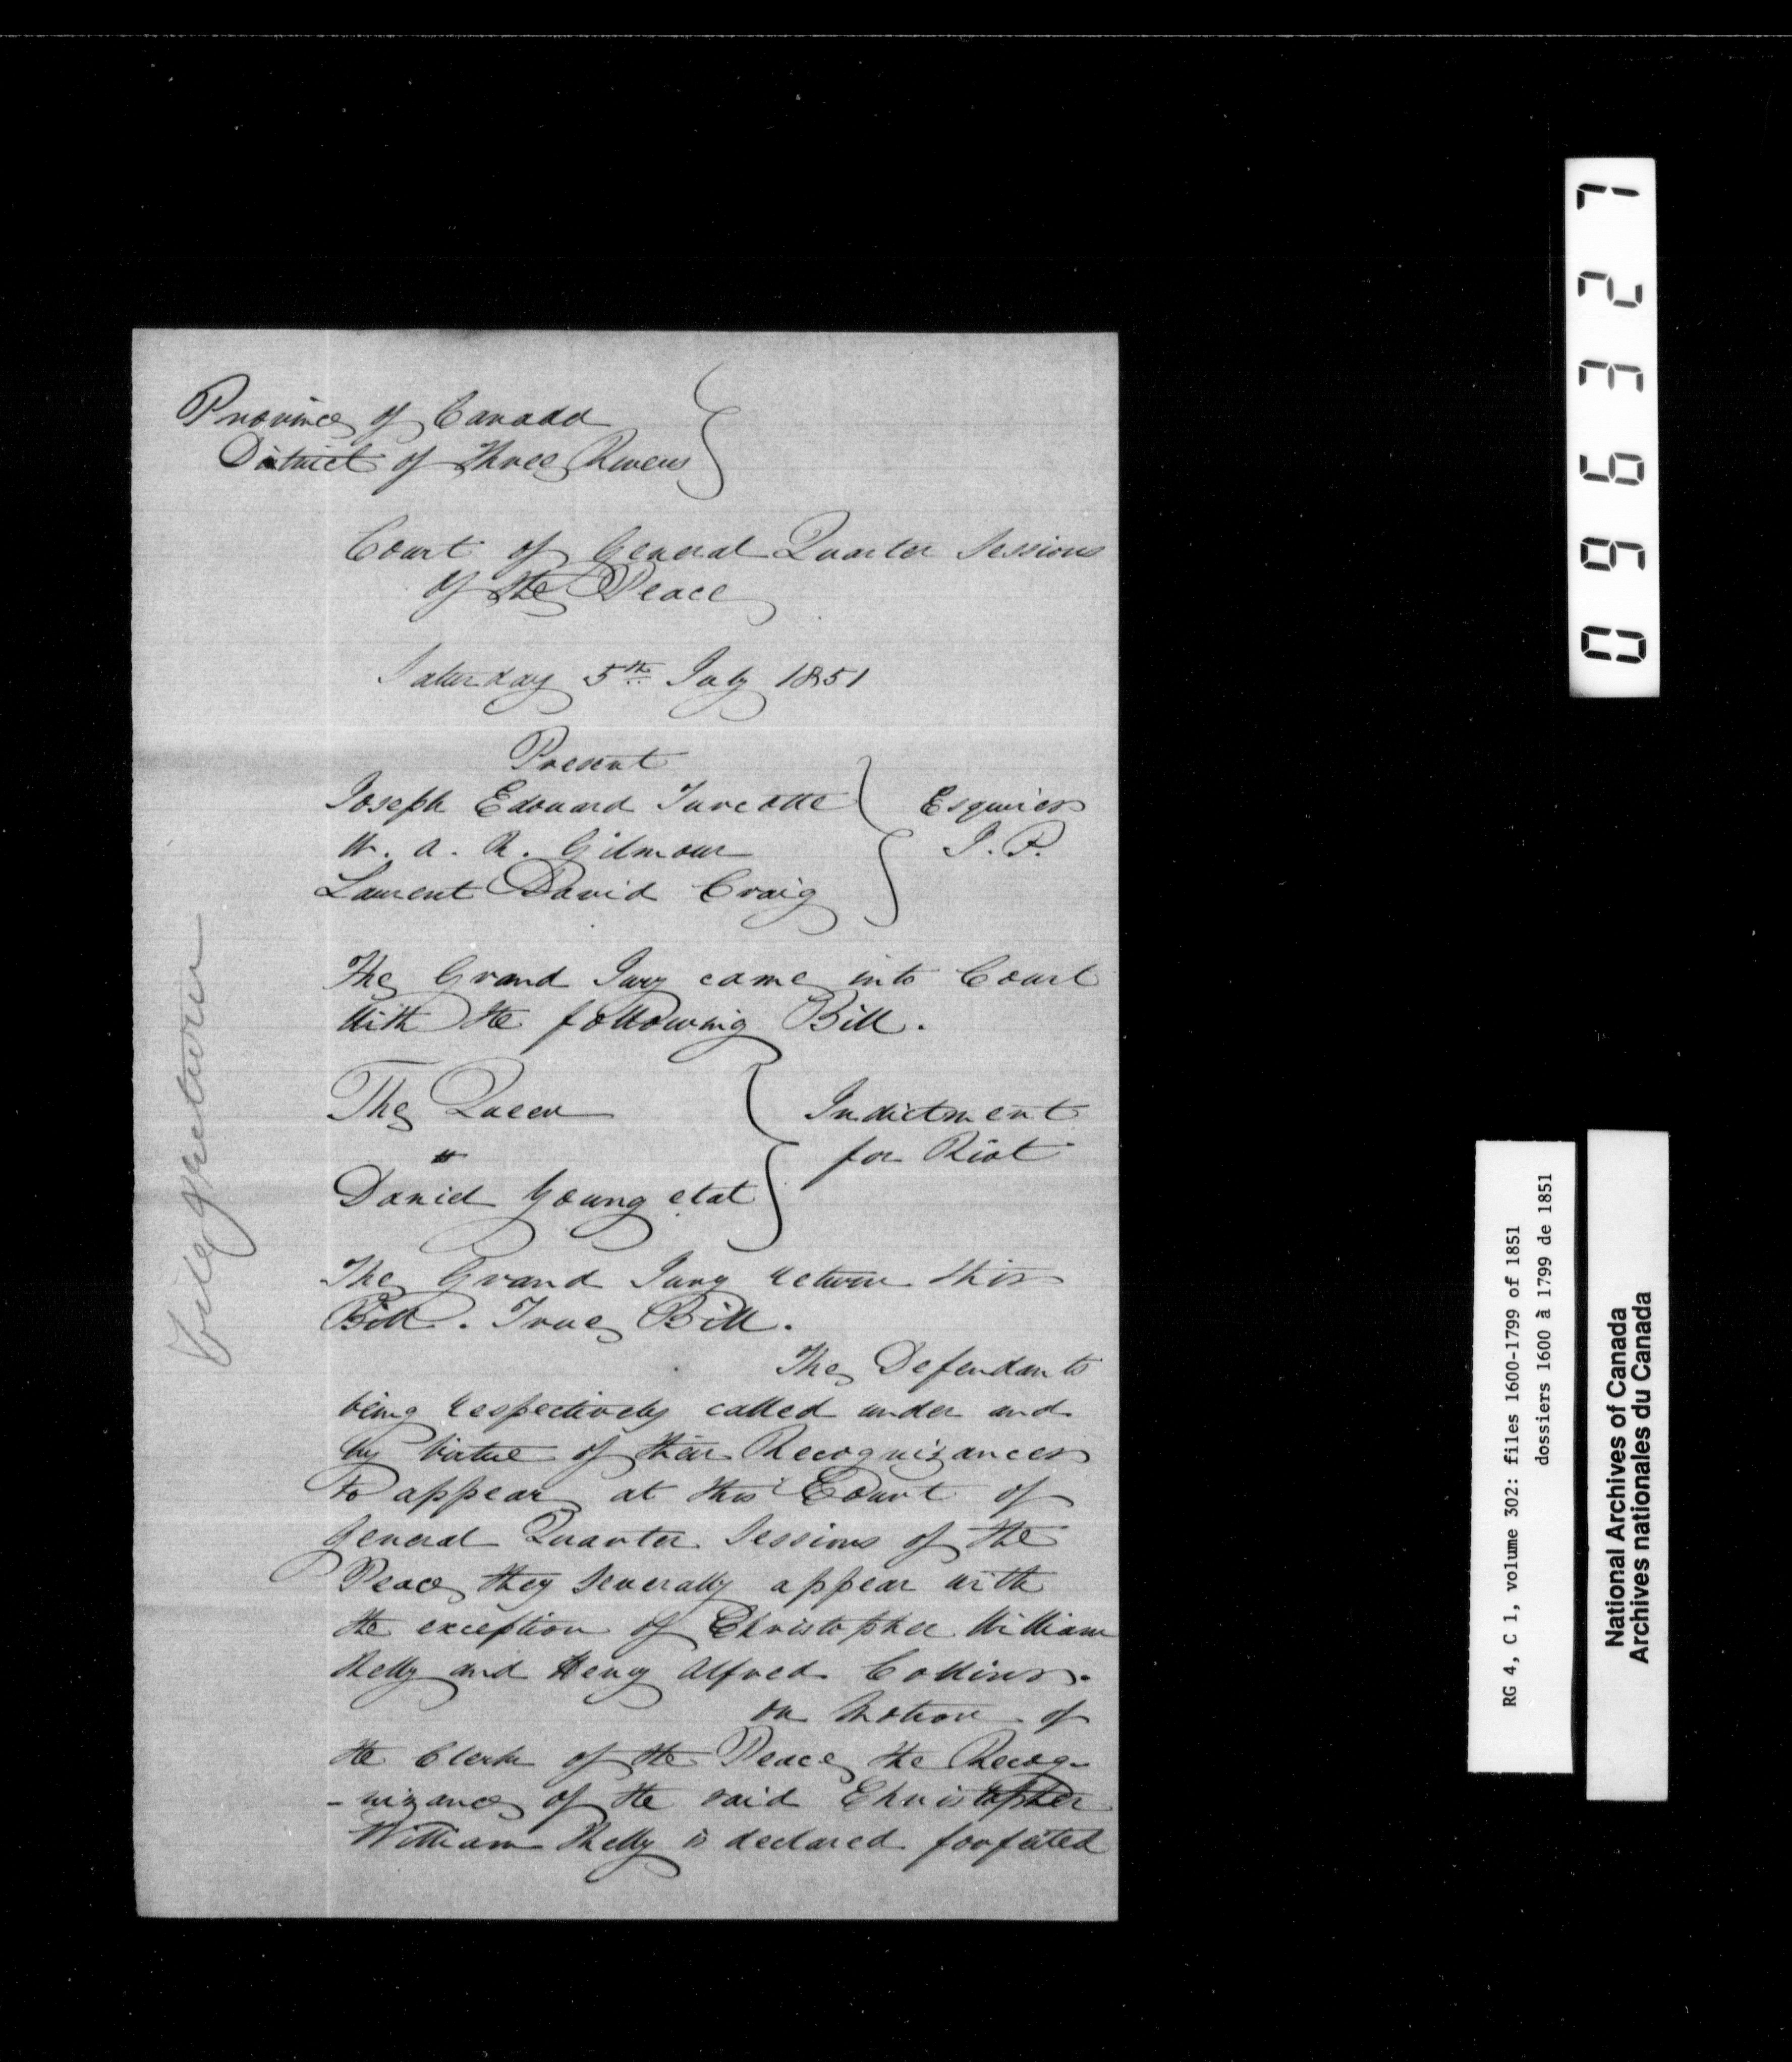 Province of Canada
District of Three Rivers
Court of General Quarter Sessions
of the Peace
Saturday 5th July 1851
Present
Joseph Edouard Turcotte
W. A. R. Gilmour
Laurent David Craig
Esquires
J. P.
The Grand Jury came into Court
With the following Bill.
The Queen
vs
Daniel Young et al
Indictment
for Riot
The Grand Jury return this
Bill. True Bill.
The Defendants
being respectively called under and
by virtue of their Recognizances
to appear at this Court of
General Quarter Sessions of the
Peace they severally appear with
the exception of Christopher William
Kelly and Henry Alfred Collins.
On Motion of
the Clerk of the Peace the Recog-
-nizance of the said Christopher
William Kelly is declared forfeited
096327
RG 4, C 1, volume 302: files 1600-1799 of 1851
dossiers 1600 à 1799 de 1851
National Archives of Canada
Archives nationales du Canada